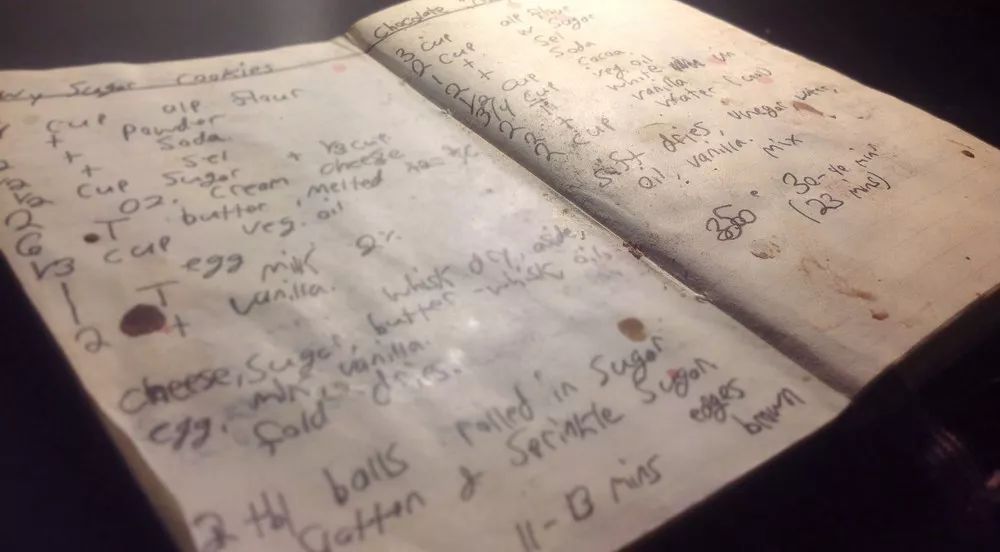 wy Sugar Cookies
cup alp flour
t powder
t soda
1/2 t sel
1/2 cup sugar + 1/3 cup
2 oz. cream cheese
6 T butter, melted
1/3 cup veg. oil
1 egg
1 T milk 2%
2 t vanilla. whisk dry, aside,
cheese, sugar, butter - whisk oil,
egg, vanilla.
fold dries.
2 tbl balls rolled in sugar
flatten & sprinkle sugar
edges
11-13 mins brown
Chocolate
3 cup alp flour
2 cup w sugar
t sel
2 t soda
1/2 cup cocoa
3/4 cup veg. oil
2 T white vin
2 t vanilla
2 cup water
Sift dries, vinegar water,
oil, vanilla. mix
350° 30-40 min
(23 mins)